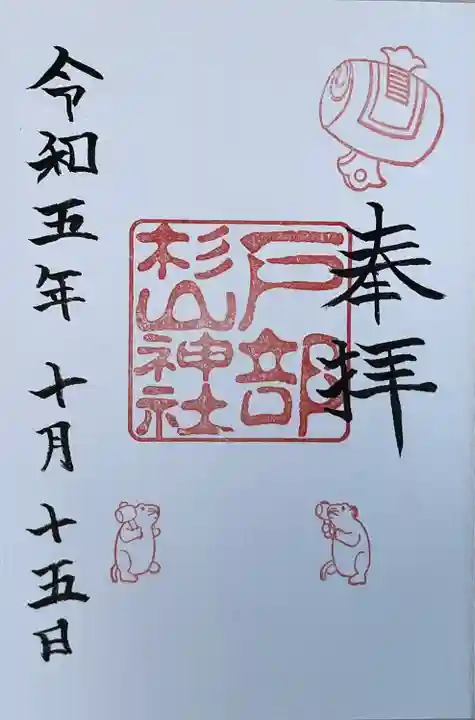 奉拝
戸部
杉山神社
令和五年十月十五日